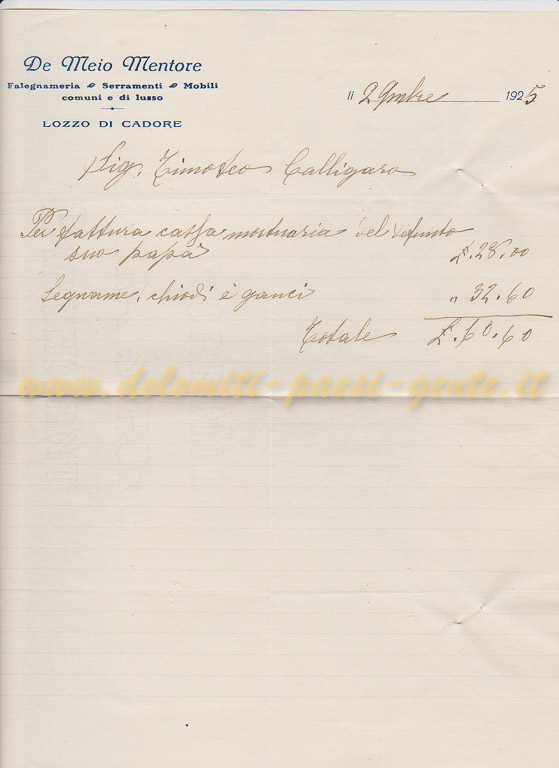 De Meio Mentore
Falegnameria Serramenti Mobili
comuni e di lusso
LOZZO DI CADORE
li 2 9mbre 1925
Sig. Timoteo Calligaro
Per fattura cassa mortuaria del defunto
suo papà £. 28.00
Legname, chiodi è ganci " 32.60
Totale £. 60.60
www.dolomiti-paesi-gente.it